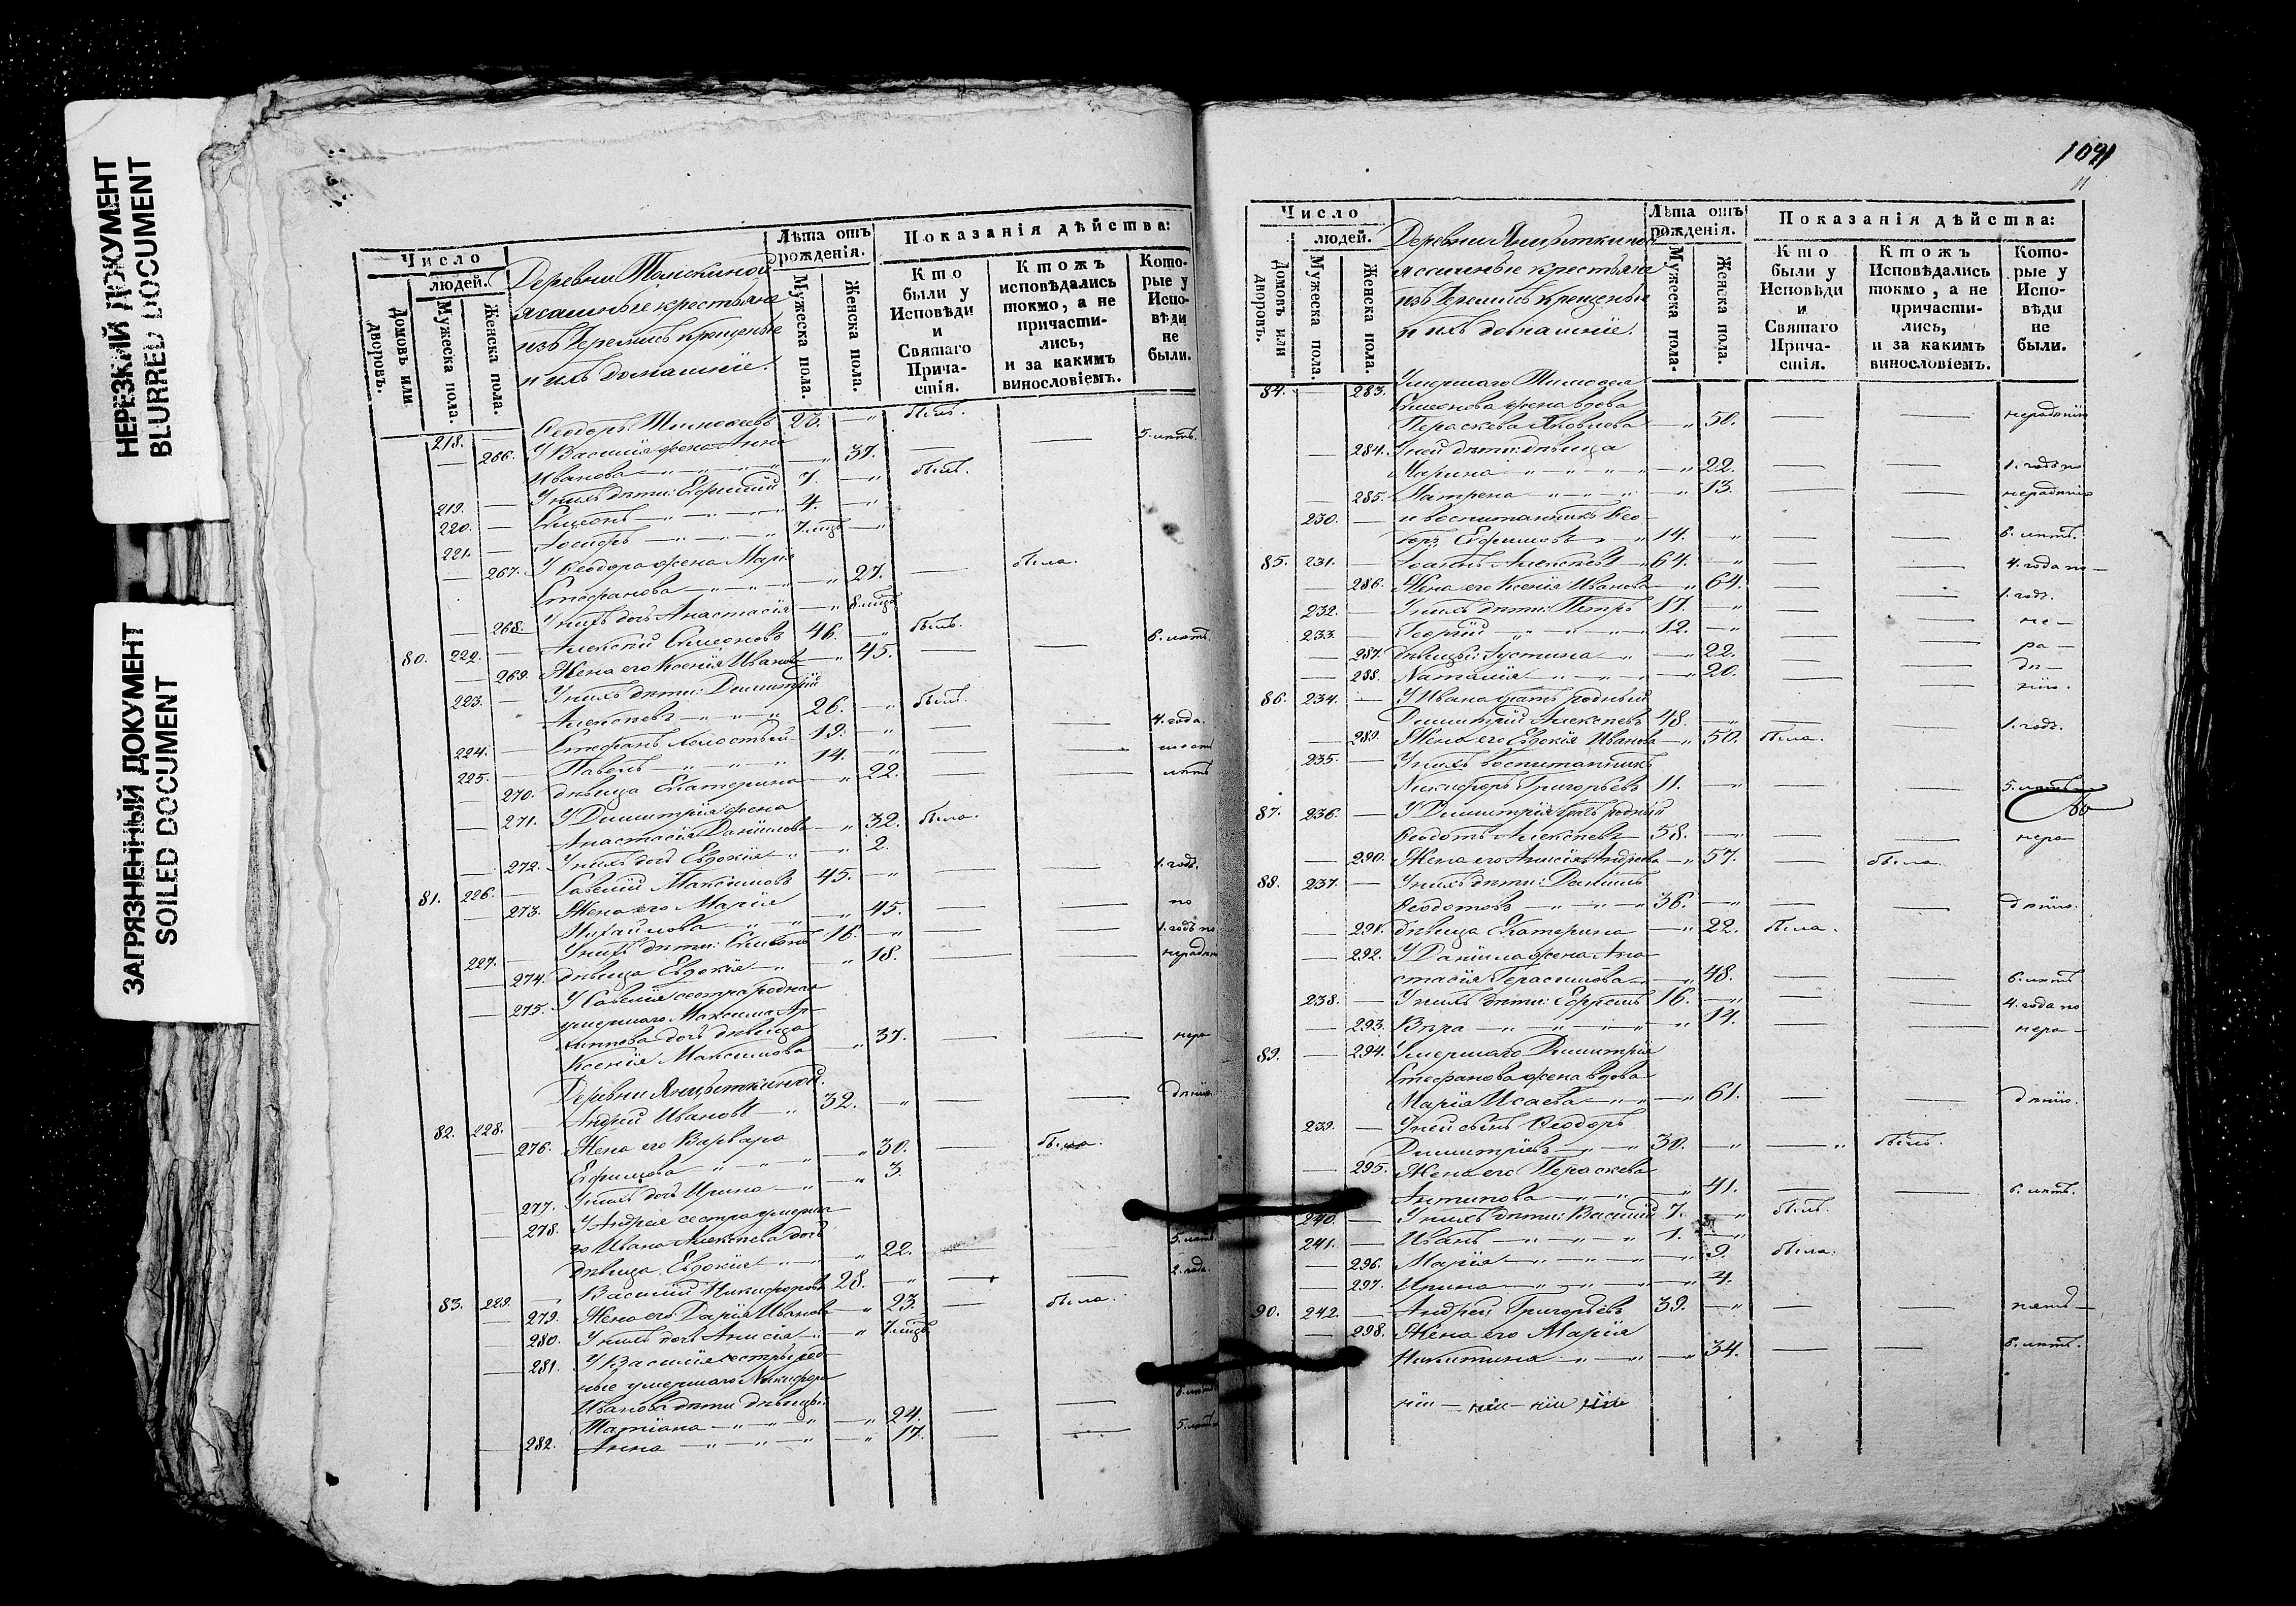 НЕРЕЗКИЙ ДОКУМЕНТ
BLURRED DOCUMENT
ЗАГРЯЗНЕННЫЙ ДОКУМЕНТ
SOILED DOCUMENT
Число
людей.
Домовъ или дворовъ.
Мужеска пола.
Женска пола.
Деревни
ясашные крестьяне
изъ Черемисъ крещеные
и ихъ домашніе.
Лѣта отъ рожденія.
Мужеска пола.
Женска пола.
Показанія дѣйства:
Кто были у Исповѣди и Святаго Причастія.
Ктожъ исповѣдались токмо, а не причастились, и за какимъ винословіемъ.
Которые у Исповѣди не были.
218. — Ѳеодоръ Тимоѳеевъ 23. былъ.
— 266. У Василія жена Анна
Иванова 37. — — 5. лѣтъ.
219. — У нихъ дѣти: Евфимій 7. былъ.
220. — Симеонъ 4.
221. — Іосифъ 7. мцъ
— 267. У Ѳеодора жена Марія
Стефанова 27. — была.
— 268. У нихъ дочь Анастасія 8. мцъ
80. 222. — Алексій Симеоновъ 46. былъ.
— 269. Жена его Ксенія Иванова 45. — — 6. лѣтъ.
223. — У нихъ дѣти: Димитрій
Алексѣевъ 26. былъ.
224. — Стефанъ холостый 19. — — 4. года.
225. — Павелъ 14.
— 270. дѣвица Екатерина 22. — — лѣтъ
— 271. У Димитрія жена
Анастасія Данилова 32. была.
— 272. У нихъ дочь Евдокія 2.
81. 226. — Савелій Максимовъ 45. — — 1. годъ.
— 273. Жена его Марія
Михайлова 45. — — по
227. — У нихъ дѣти: Симеонъ 16. — — 1. годъ по
— 274. дѣвица Евдокія 18. — — нерадѣн
— 275. У Савелія сестра родная
умершаго Максима
дочь дѣвица
Ксенія Максимова 37. — — нера
Деревни
82. 228. Андрей Ивановъ 32. — — дѣнію.
— 276. Жена его Варвара
Ефимова 30. — была.
— 277. У нихъ дочь Ирина 3
— 278. У Андрея сестра умерша
го Ивана Алексѣева дочь
дѣвица Евдокія 22. — — 5. лѣтъ.
83. 229. — Василій Никифоровъ 28. — — 2. года.
— 279. Жена его Дарія Иванова 23. — была.
— 280. У нихъ дочь Анисія 7. мцъ
— 281. У Василія сестры род-
ные умершаго Никифора
Иванова дѣти дѣвицы:
Татіана 24. — —
— 282. Анна 17. — — 5. лѣтъ
1091
11
Число
людей.
Домовъ или дворовъ.
Мужеска пола.
Женска пола.
Деревни
ясашные крестьяне
изъ Черемисъ крещеные
и ихъ домашніе.
Лѣта отъ рожденія.
Мужеска пола.
Женска пола.
Показанія дѣйства:
Кто были у Исповѣди и Святаго Причастія.
Ктожъ Исповѣдались токмо, а не причастились, и за какимъ винословіемъ.
Которые у Исповѣди не были.
84. — 283. Умершаго Тимоѳея
Симеонова жена вдова
Пераскева Яковлева 50. — — нерадѣнію
— 284. У ней дѣти: дѣвица
Марина 22. — — 1. годъ по
— 285. Матрена 13. — — нерадѣнію
230. — и воспитанникъ Ѳео-
доръ Евфимовъ 14. — — 6. лѣтъ.
85. 231. — Іоаннъ Алексѣевъ 64. — — 4. года по —
— 286. Жена его Ксенія Иванова 64. — — 1. годъ.
232. — У нихъ дѣти: Петръ 17. — — не —
233. — Георгій 12. — — ра —
— 287. дѣвицы: Іустина 22. — — дѣ —
— 288. Наталія 20. — — нію.
86. 234. — У Ивана братъ родный
Димитрій Алексѣевъ 48. — — 1. годъ.
— 289. Жена его Евдокія Иванова 50. была.
235. — У нихъ воспитанникъ
Никифоръ Григорьевъ 11. — — 5. лѣтъ
87. 236. — У Димитрія братъ родный
Ѳеодотъ Алексѣевъ 58. — — нера
— 290. Жена его Анисія Андреева 57. — была.
88. 237. — У нихъ дѣти: Даніилъ
Ѳеодотовъ 36. — — дѣнію.
— 291. дѣвица Екатерина 22. была.
— 292. У Даніила жена Ана-
стасія Герасимова 48. — — 6. лѣтъ
238. — У нихъ дѣти: Ефремъ 16. — — 4. года по
— 293. Вѣра 14. — — нера —
89. — 294. Умершаго Димитрія
Стефанова жена вдова
Марія Исаева 61. — — дѣнію.
239. — У ней сынъ Ѳеодоръ
Димитріевъ 30. — былъ.
— 295. Жена его Пераскева
Антипова 41. — — 6. лѣтъ.
240. — У нихъ дѣти: Василій 7. былъ.
241. — Иванъ 1.
— 296. Марія 9. была.
— 297. Ирина 4.
90. 242. — Андрей Григорьевъ 39. — — пять —
— 298. Жена его Марія
Никитина 34. — — 6. лѣтъ.